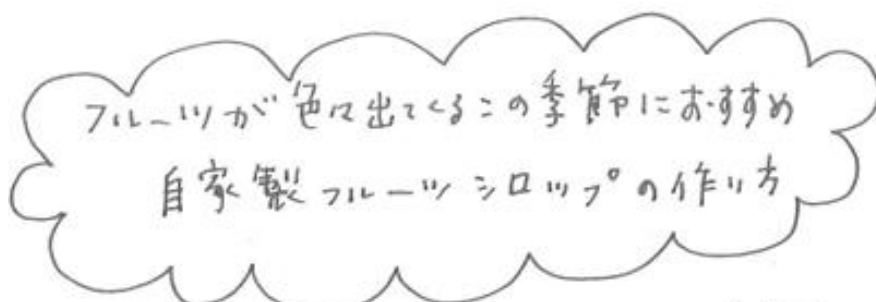 フルーツが色々出てくるこの季節におすすめ
自家製フルーツシロップの作り方